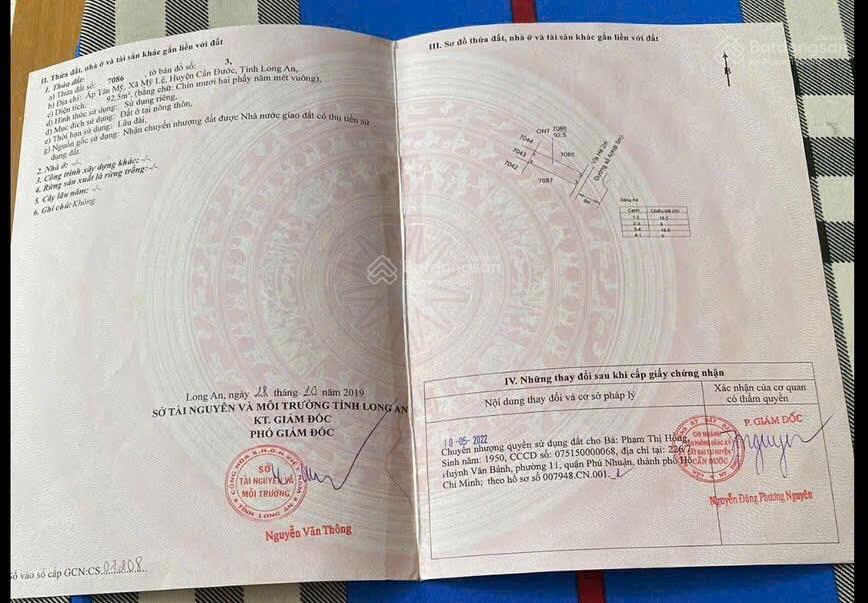 II. Thửa đất, nhà ở và tài sản khác gắn liền với đất
1. Thửa đất:
a) Thửa đất số: 7086 , tờ bản đồ số: 3,
b) Địa chỉ: Ấp Tân Mỹ, Xã Mỹ Lệ, Huyện Cần Đước, Tỉnh Long An,
c) Diện tích: 92.5m², (bằng chữ: Chín mươi hai phẩy năm mét vuông),
d) Hình thức sử dụng: Sử dụng riêng,
đ) Mục đích sử dụng: Đất ở tại nông thôn,
e) Thời hạn sử dụng: Lâu dài,
g) Nguồn gốc sử dụng: Nhận chuyển nhượng đất được Nhà nước giao đất có thu tiền sử
dụng đất.
2. Nhà ở: -/-
3. Công trình xây dựng khác: -/-
4. Rừng sản xuất là rừng trồng: -/-
5. Cây lâu năm: -/-
6. Ghi chú: Không
Long An, ngày 28 tháng 10 năm 2019
SỞ TÀI NGUYÊN VÀ MÔI TRƯỜNG TỈNH LONG AN
KT. GIÁM ĐỐC
PHÓ GIÁM ĐỐC
CỘNG HÒA X.H.C.N VIỆT NAM
SỞ
TÀI NGUYÊN VÀ
MÔI TRƯỜNG
TỈNH LONG AN
Nguyễn Văn Thông
Số vào sổ cấp GCN:CS 01808
III. Sơ đồ thửa đất, nhà ở và tài sản khác gắn liền với đất
B
ONT 7086
92.5
7044
7043
7042
7085
7087
Vỉa Hè 2m
Đường số
Cạnh Chiều dài (m)
1-2 18.5
2-3 5
3-4 18.5
4-1 5
IV. Những thay đổi sau khi cấp giấy chứng nhận
Nội dung thay đổi và cơ sở pháp lý
Xác nhận của cơ quan
có thẩm quyền
10-05-2022
Chuyển nhượng quyền sử dụng đất cho Bà: Phạm Thị Hồng,
Sinh năm: 1950, CCCD số: 075150000068, địa chỉ tại: 226/
Huỳnh Văn Bánh, phường 11, quận Phú Nhuận, thành phố Hồ
Chí Minh; theo hồ sơ số 007948.CN.001.
P. GIÁM ĐỐC
CHI NHÁNH
CẦN ĐƯỚC
Nguyễn Đặng Phương Nguyên
Batdongsan
Batdongsan